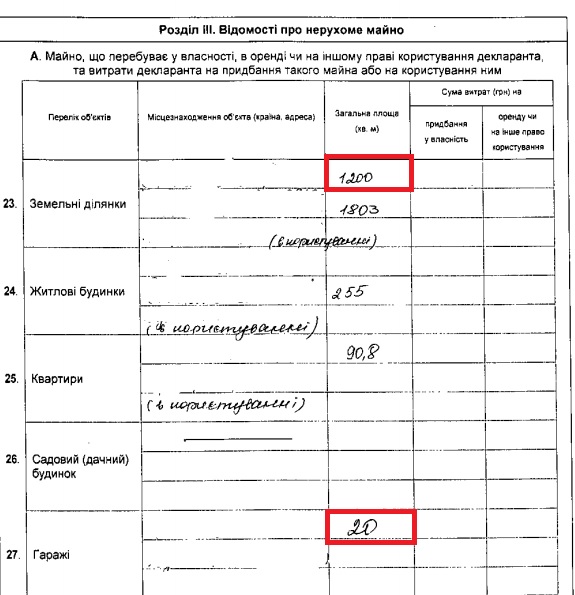 Розділ III. Відомості про нерухоме майно
А. Майно, що перебуває у власності, в оренді чи на іншому праві користування декларанта,
та витрати декларанта на придбання такого майна або на користування ним
Перелік об'єктів
Місцезнаходження об'єкта (країна, адреса)
Загальна площа
(кв. м)
Сума витрат (грн) на
придбання
у власність
оренду чи
на інше право
користування
23. Земельні ділянки
1200
1803
(в користуванні)
24. Житлові будинки
255
(в користуванні)
25. Квартири
90,8
(в користуванні)
26. Садовий (дачний)
будинок
27. Гаражі
20